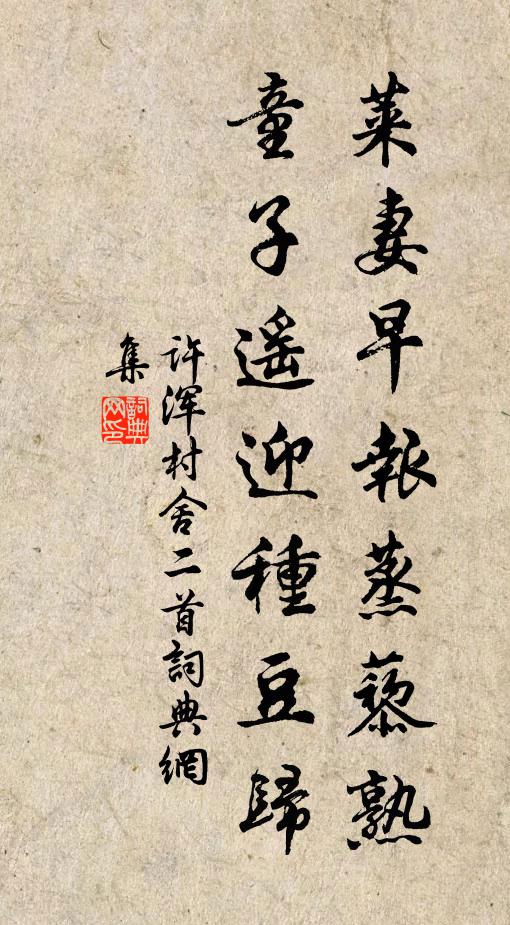 萊妻早報蒸藜熟
童子遥迎種豆歸
許渾村舍二首詞典網
集
詞典網印